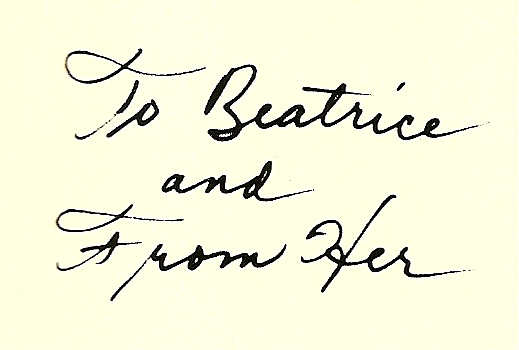 To Beatrice
and
From Her